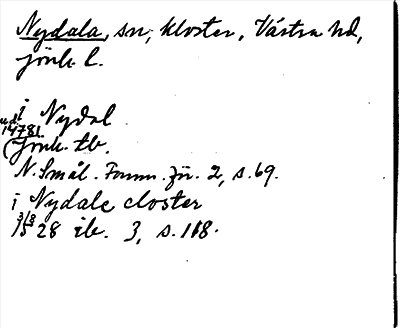 Nydala, sn, kloster, Västra hd,
jönk. l.
i Nydal
u. d.
1478
(Jönk. tb.
N. Smål. Fornm. för. 2, s. 69.
i Nydale closter
3/8
1528 ib. 3, s. 118.